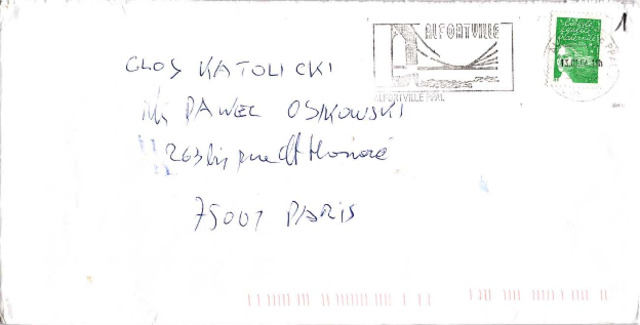 ALFORTVILLE
ALFORTVILLE PPAL
1
GLOS KATOLICKI
PAWEL OSIKOWSKI
263 bis rue St Honoré
75001 PARIS